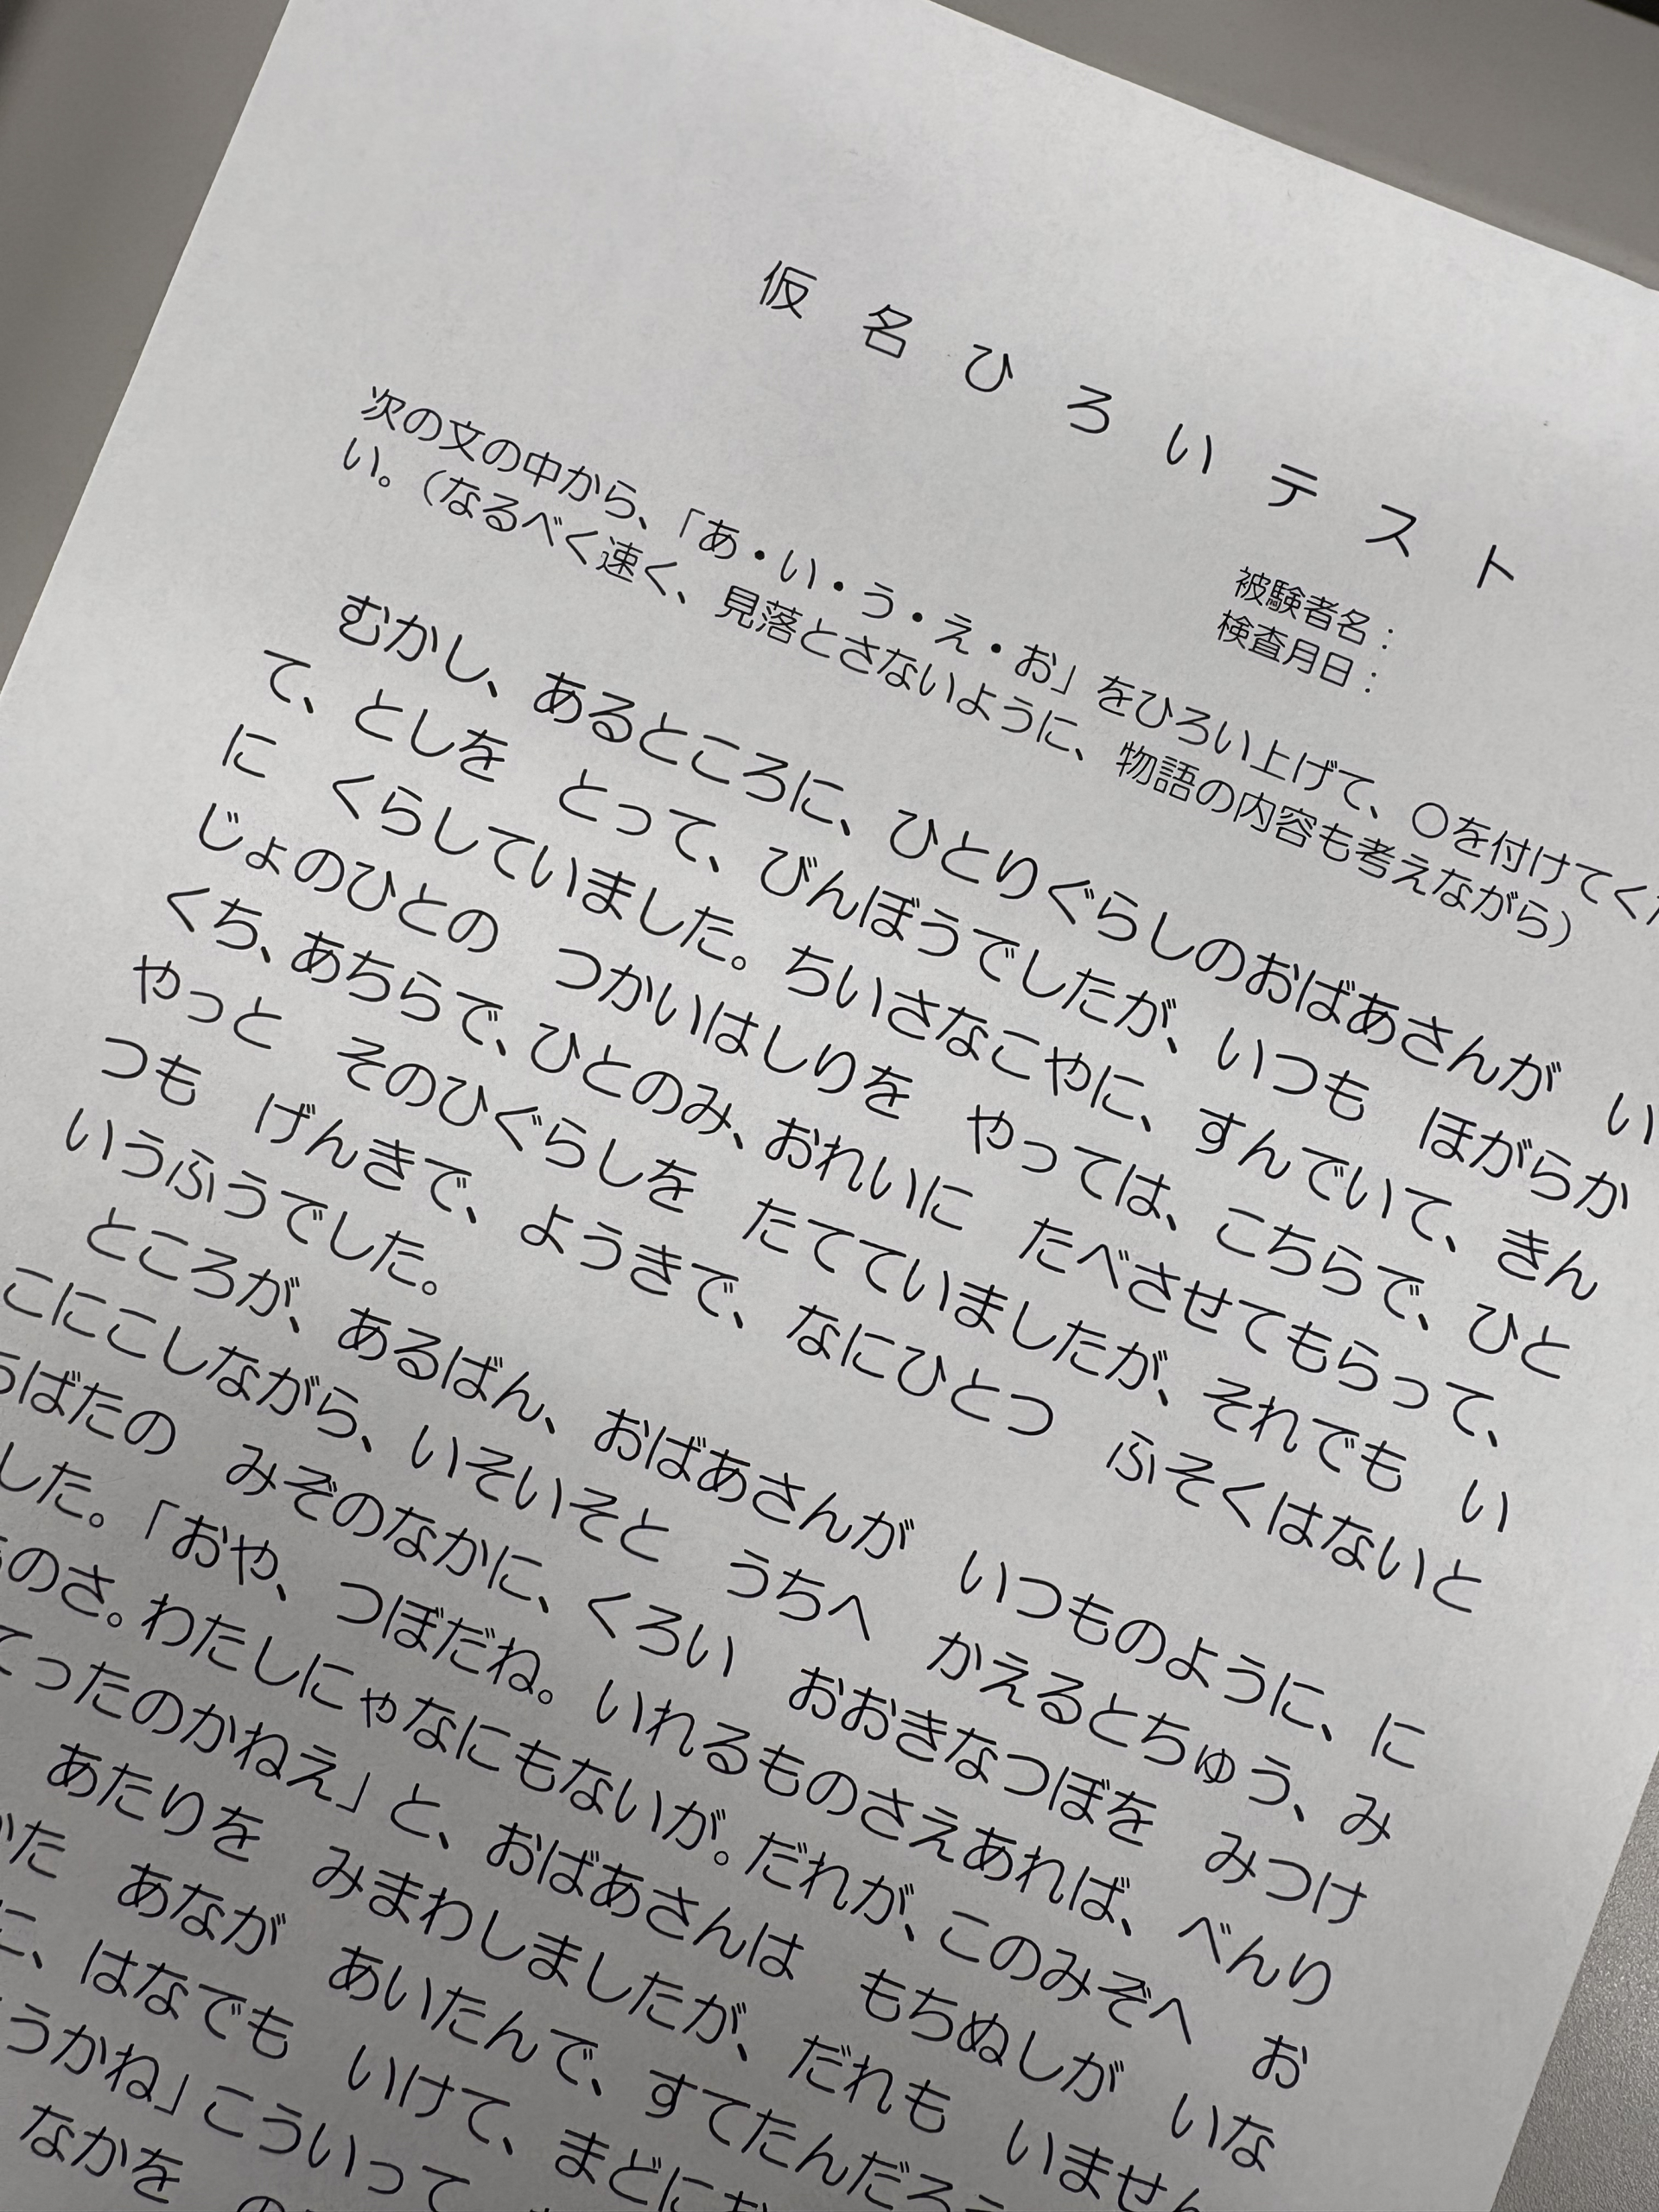 仮名ひろいテスト
被験者名：
検査月日：
次の文の中から、「あ・い・う・え・お」をひろい上げて、〇を付けてくだ
い。（なるべく速く、見落とさないように、物語の内容も考えながら）
むかし、あるところに、ひとりぐらしのおばあさんが　い
て、としを　とって、びんぼうでしたが、いつも　ほがらか
に　くらしていました。ちいさなこやに、すんでいて、きん
じょのひとの　つかいはしりを　やっては、こちらで、ひと
くち、あちらで、ひとのみ、おれいに　たべさせてもらって、
やっと　そのひぐらしを　たてていましたが、それでも　い
つも　げんきで、ようきで、なにひとつ　ふそくはないと
いうふうでした。
ところが、あるばん、おばあさんが　いつものように、に
こにこしながら、いそいそと　うちへ　かえるとちゅう、み
ばたの　みぞのなかに、くろい　おおきなつぼを　みつけ
した。「おや、つぼだね。いれるものさえあれば、べんり
のさ。わたしにゃなにもないが。だれが、このみぞへ　お
てったのかねえ」と、おばあさんは　もちぬしが　いな
あたりを　みまわしましたが、だれも　いません
た　あなが　あいたんで、すてたんだろう
に、はなでも　いけて、まどに
うかね」こういって
なかを